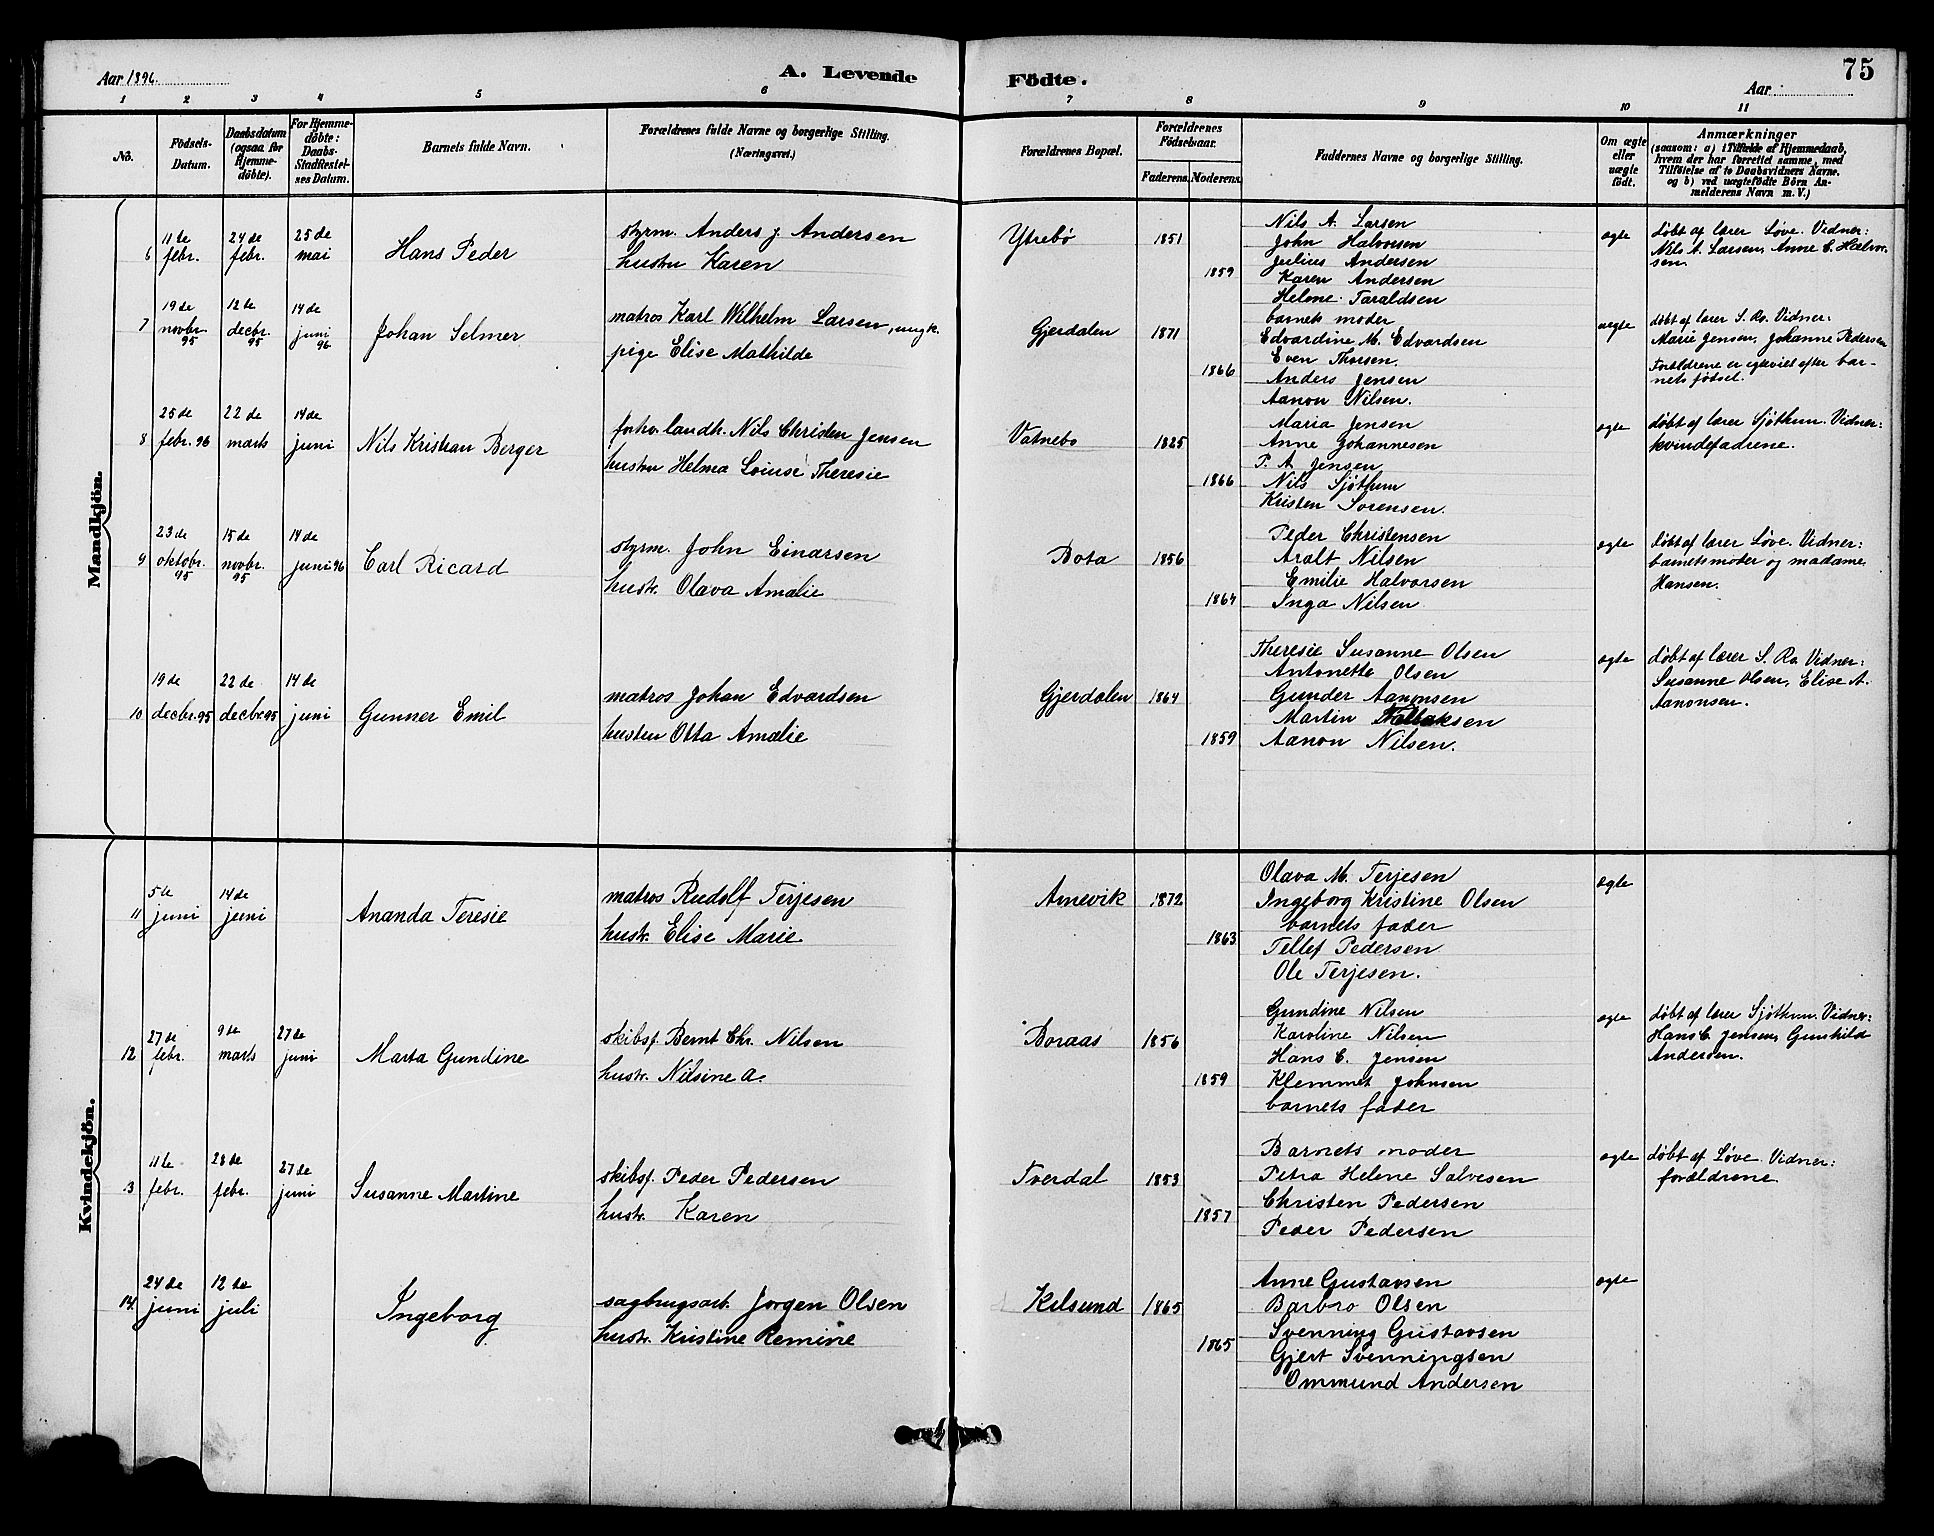 Aar 1896.
A. Levende Födte.
Aar
75
1 2 3 4 5 6 7 8 9 10 11
No.
Födsels-Datum.
Daabsdatum (ogsaa for Hjemme-döbte).
For Hjemme-döbte: Daabs-Stadfestel-ses Datum.
Barnets fulde Navn.
Forældrenes fulde Navne og borgerlige Stilling. (Næringsvei.)
Forældrenes Bopæl.
Forældrenes Födselsaar.
Faderens.
Moderens.
Faddernes Navne og borgerlige Stilling.
Om ægte eller uægte födt.
Anmærkninger (saasom: a) i Tilfælde af Hjemmedaab, hvem der har forrettet samme, med Tilföielse af to Daabsvidners Navne. og b) ved uægtefödte Börn An-melderens Navn m. V.)
Mandkjön.
6
11te febr.
24de febr.
25de mai
Hans Peder
styrm. Anders J. Andersen
hustru Karen
Ytrebö
1851
1859
Nils A. Larsen
John Halvorsen
Julius Andersen
Karen Andersen
Helene Taraldsen
ægte
døbt af lærer Løve. Vidner:
Nils A. Larsen, Anne C. Halvor-
sen.
7
19de novbr. 95
12te decbr. 95
14de juni 96
Johan Selmer
matros Karl Wilhelm Larsen, ungk.
pige Elise Mathilde
Gjerdalen
1871
1866
barnets moder
Edvardine M. Edvardsen
Even Thorsen.
Anders Jensen
Aanon Nilsen.
uægte
døbt af lærer S. Ro. Vidner:
Marie Jensen, Johanne Pedersen
Forældrene er egteviet efter bar-
nets fødsel.
8
25de febr. 96
22de marts
14de juni
Nils Kristian Berger
forhv. landh. Nils Christen Jensen
hustru Helma Louise Theresie
Vatnebo
1825
1866
Maria Jensen
Anne Johannesen
P. A. Jensen
Nils Sjøthun
Kristen Sørensen.
ægte
døbt af lærer Sjøthun. Vidner:
kvindefadrene.
9
23de oktobr. 95
15de novbr. 95
14de juni 96
Carl Ricard
styrm. John Einarsen
hustr. Olava Amalie
Bota
1856
1864
Peder Christensen
Aralt Nilsen
Emilie Halvorsen
Inga Nilsen
ægte
døbt af lærer Løve. Vidner:
barnets moder og madame
Hansen.
10
19de decbr. 95
22de decbr. 95
14de juni
Gunner Emil
matros Johan Edvardsen
hustru Otta Amalie
Gjerdalen
1864
1859
Theresie Susanne Olsen
Antonette Olsen
Gunder Aanonsen
Martin Tallaksen
Aanon Nilsen.
ægte
døbt af lærer S. Ro. Vidner:
Susanne Olsen, Elise A.
Aanonsen.
Kvindekjön.
11
5te juni
14de juni
Ananda Teresie
matros Rudolf Terjesen
hustr. Elise Marie
Arnevik
1872
1863
Olava M. Terjesen
Ingeborg Kristine Olsen
barnets fader
Tellef Pedersen
Ole Terjesen.
ægte
12
27de febr.
9de marts
27de juni
Marta Gundine
skibsf. Bernt Chr. Nilsen
hustr. Nilsine A.
Boraas
1856
1859
Gundine Nilsen
Karoline Nilsen
Hans C. Jensen
Klemmet Johnsen
barnets fader
ægte
døbt af lærer Sjøthun. Vidner:
Hans C. Jensen, Gunhild
Andersen.
13
11te febr.
28de febr.
27de juni
Susanne Martine
skibsf. Peder Pedersen
hustr. Karen
Tverdal
1853
1857
Barnets moder
Petra Helene Salvesen
Christen Pedersen
Peder Pedersen
ægte
døbt af Løve. Vidner:
forældrene.
14.
24de juni
12te juli
Ingeborg
sagbrugsarb. Jørgen Olsen
hustr. Kristine Remine
Kilsund
1865
1865
Anne Gustavsen
Barbro Olsen
Svenning Gustavsen
Gjert Svenningsen
Ommund Andersen
ægte